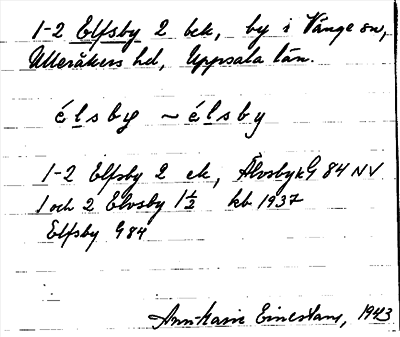 1-2 Elfsby 2 bck, by i Vänge sn,
Ulleråkers hd, Uppsala län.
élsby ~ élsby
1-2 Elfsby 2 ek, Älvsby kG 84 NV
1 och 2 Elvsby 1½ kb 1937
Elfsby G84
Ann-Marie Einestam, 1943